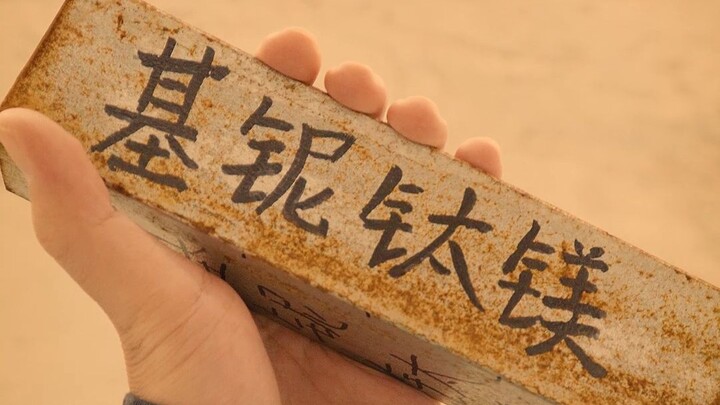 基铌钛镁